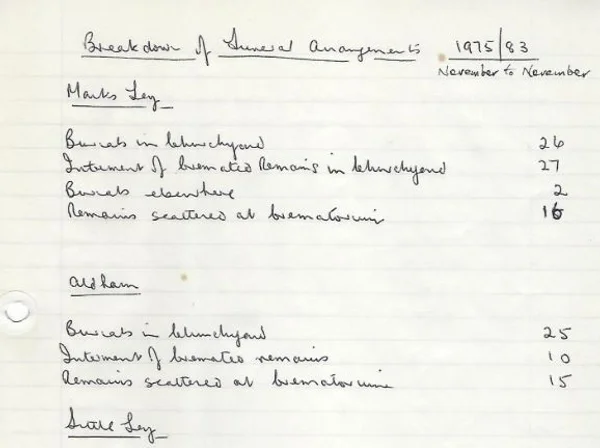 Breakdown of Funeral Arrangements 1975/83
November to November
Marks Tey
Burials in Churchyard 26
Interment of Cremated Remains in Churchyard 27
Burials elsewhere 2
Remains scattered at Crematorium 16
Aldham
Burials in Churchyard 25
Interment of Cremated remains 10
Remains scattered at Crematorium 15
Little Tey